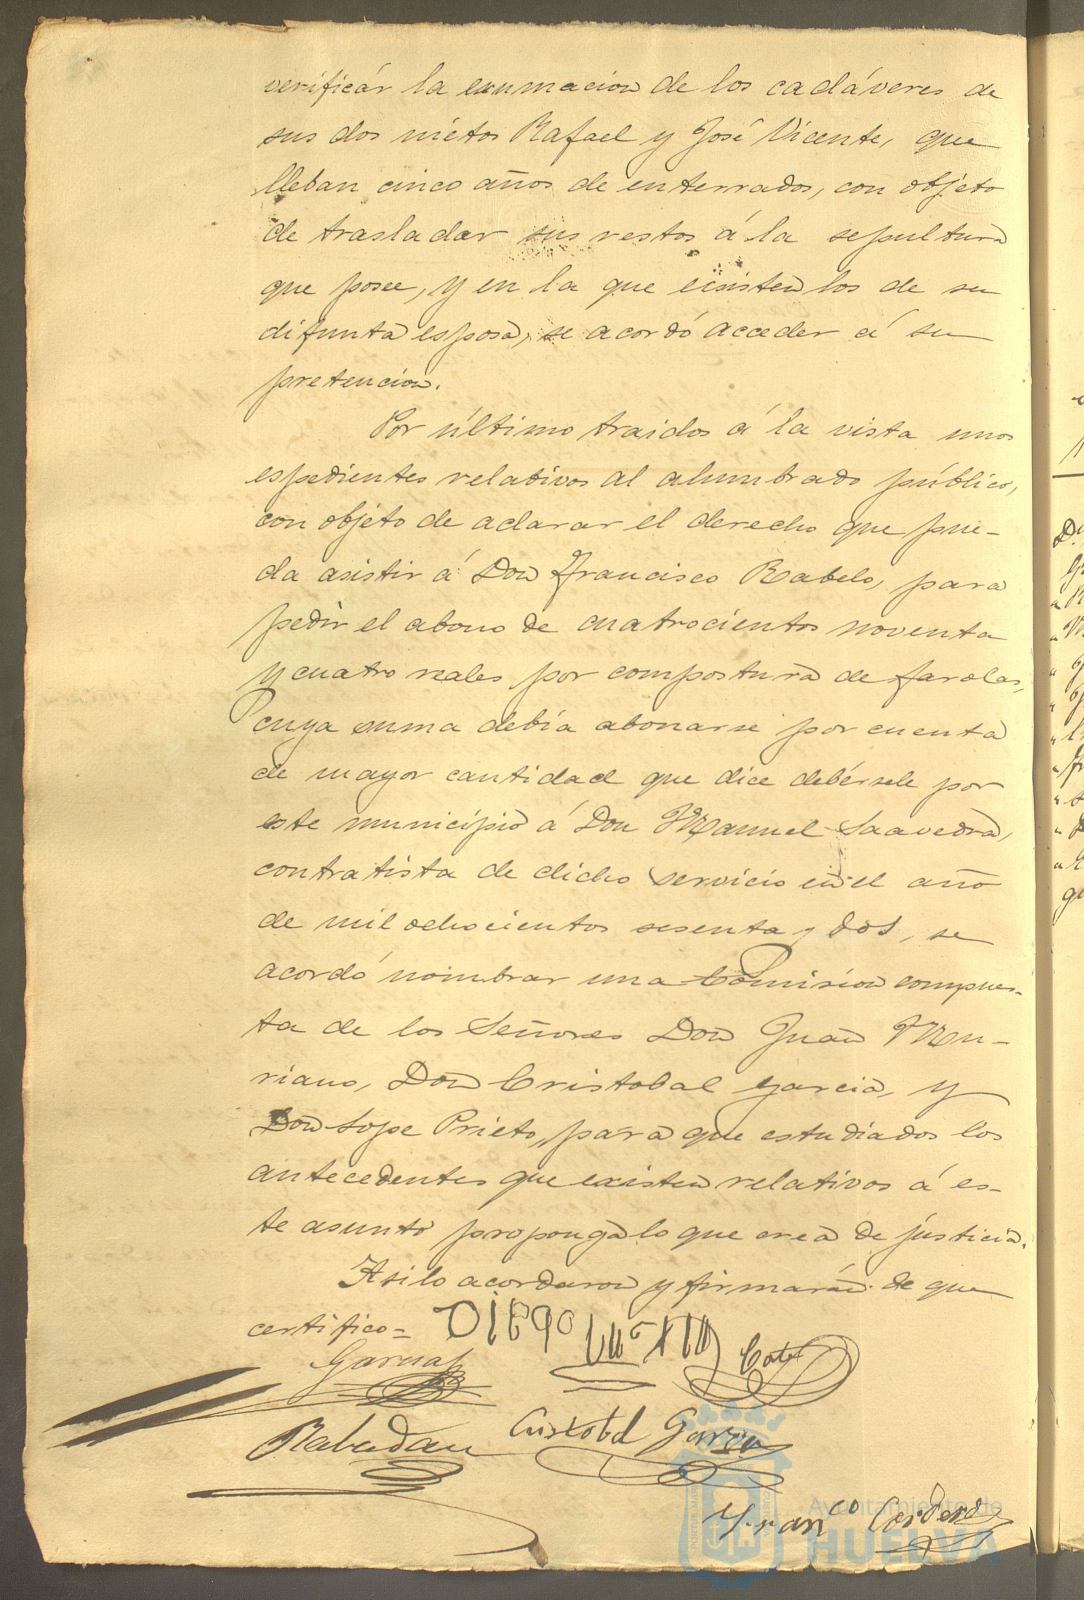 verificár la exumacion de los cadáveres de
sus dos niétos Rafael y José Vicente, que
lleban cinco años de enterrados, con objeto
de trasladar sus restos á la sepultura
que posee, y en la que existen los de su
difunta esposa, se acordó acceder á su
pretencion.
Por último traidos á la vista unos
espedientes relativos al alumbrado público,
con objéto de aclarar el derecho que pue-
da asistir á Don Francisco Rabelo, para
pedir el abono de cuatrocientos noventa
y cuatro reales por compostura de farolas,
cuya suma debía abonarse por cuenta
de mayor cantidad que dice debérsele por
este municipio á Don Manuel Saavedra,
contratista de dicho servicio en el año
de mil ochocientos sesenta y dos, se
acordó nombrar una Comision compues-
ta de los Señores Don Juan Mu-
riano, Don Cristobal Garcia, y
Don Lope Prieto, para que estudiados los
antecedentes que existen relativos á es-
te asunto proponga lo que crea de justicia.
Asi lo acordaron y firmarán de que
certifico=
Diego
Garcia
Rabadan Cristobal Garcia
Franco Cordero
Ayuntamiento de
HUELVA